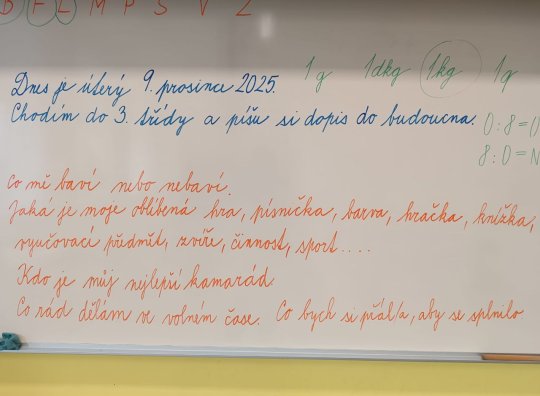 B F L M P S V Z
1g 1dkg 1kg 1g
Dnes je úterý 9. prosince 2025.
Chodím do 3. třídy a píšu si dopis do budoucna.
0:8=0
8:0=N
co mě baví nebo nebaví.
Jaká je moje oblíbená hra, písnička, barva, hračka, knížka,
vyučovací předmět, zvíře, činnost, sport....
Kdo je můj nejlepší kamarád.
Co rád dělám ve volném čase. Co bych si přál/a, aby se splnilo